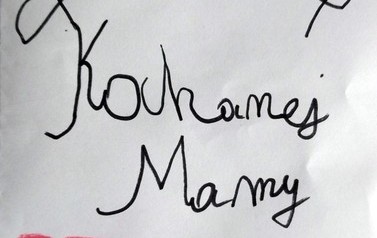 Kochanej
Mamy